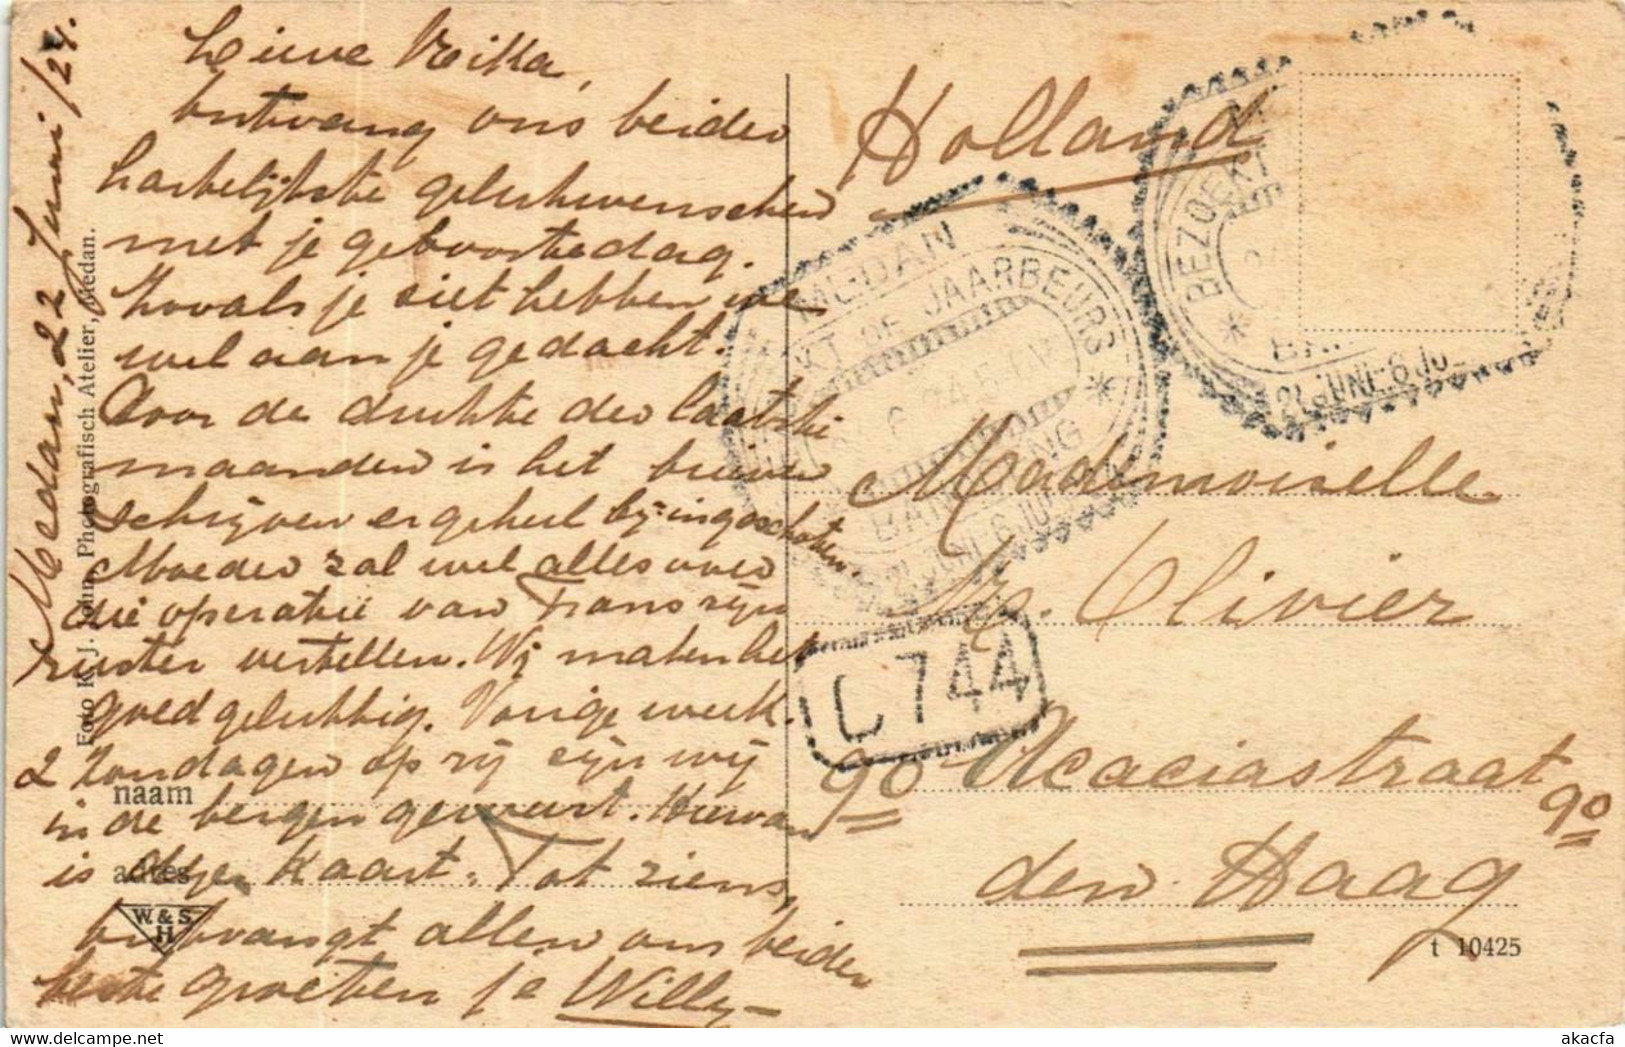 Medan, 22 Juni /24.
Lieve
Ontvang ons beider
hartelijkste gelukwenschen
met je geboortedag.
Zooals je ziet hebben we
wel aan je gedacht.
Door de drukte der laatste
maanden is het brieven
schrijven er geheel bij ingeschoten.
Moeder zal wel alles over
die operatie van Frans zijn
zuster vertellen. Wij maken het
goed gelukkig. Vorige week
2 Zondagen op rij zijn wij
in de bergen geweest. Hiervan
is deze kaart. Tot ziens,
Ontvangt allen ons beider
beste groeten je Willy
Foto K. J. Photografisch Atelier, Medan.
naam
adres
W. & S.
H
Holland
MEDAN
BEZOEKT DE JAARBEURS
BANDOENG
21 JUNI-6 JULI
BEZOEKT
21 JUNI-6 JU
C 744
Mademoiselle
Olivier
90 Acaciastraat 90
den Haag
t 10425
akacfa
www.delcampe.net